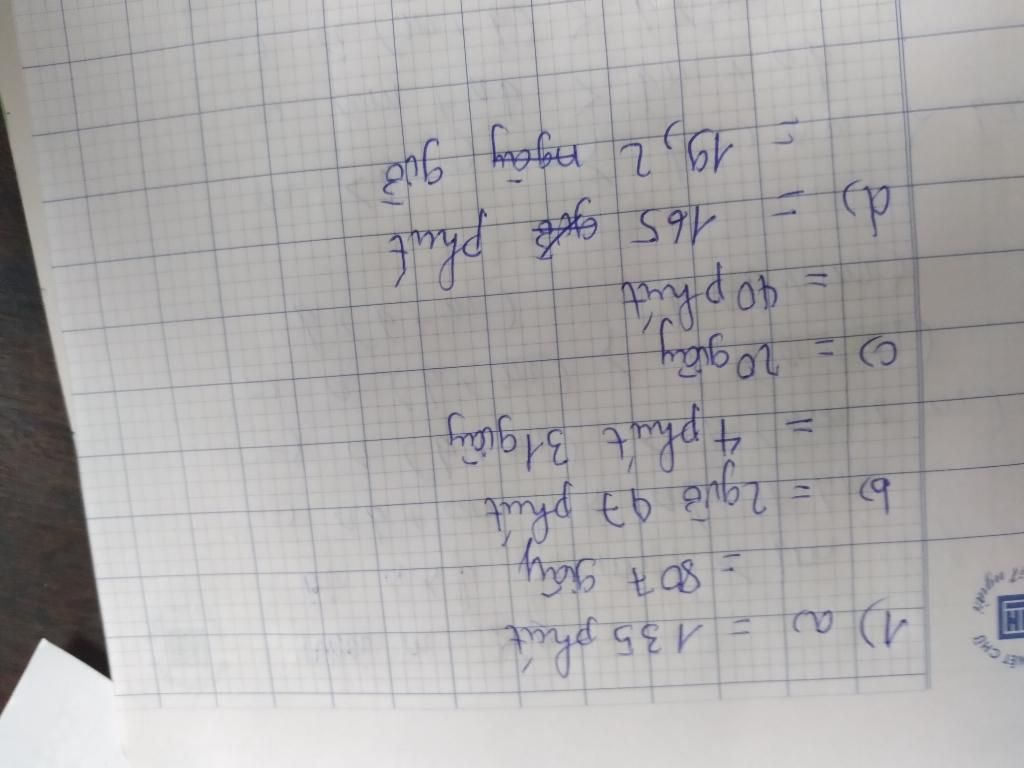 1) a) = 135 phút
= 807 giây
b) = 2giờ 47 phút
= 4 phút 31giây
c) = 20 giây
= 40 phút
d) = 165 phút
= 19,2 giờ